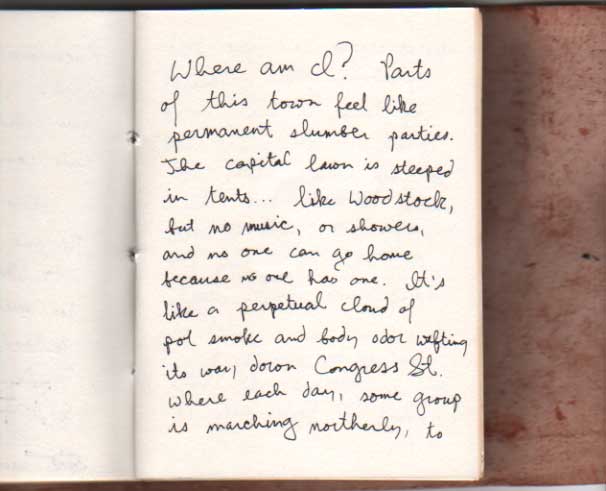 Where am I? Parts
of this town feel like
permanent slumber parties.
The capital lawn is steeped
in tents... like Woodstock,
but no music, or showers,
and no one can go home
because no one has one. It's
like a perpetual cloud of
pot smoke and body odor wafting
its way down Congress St.
where each day, some group
is marching northerly, to